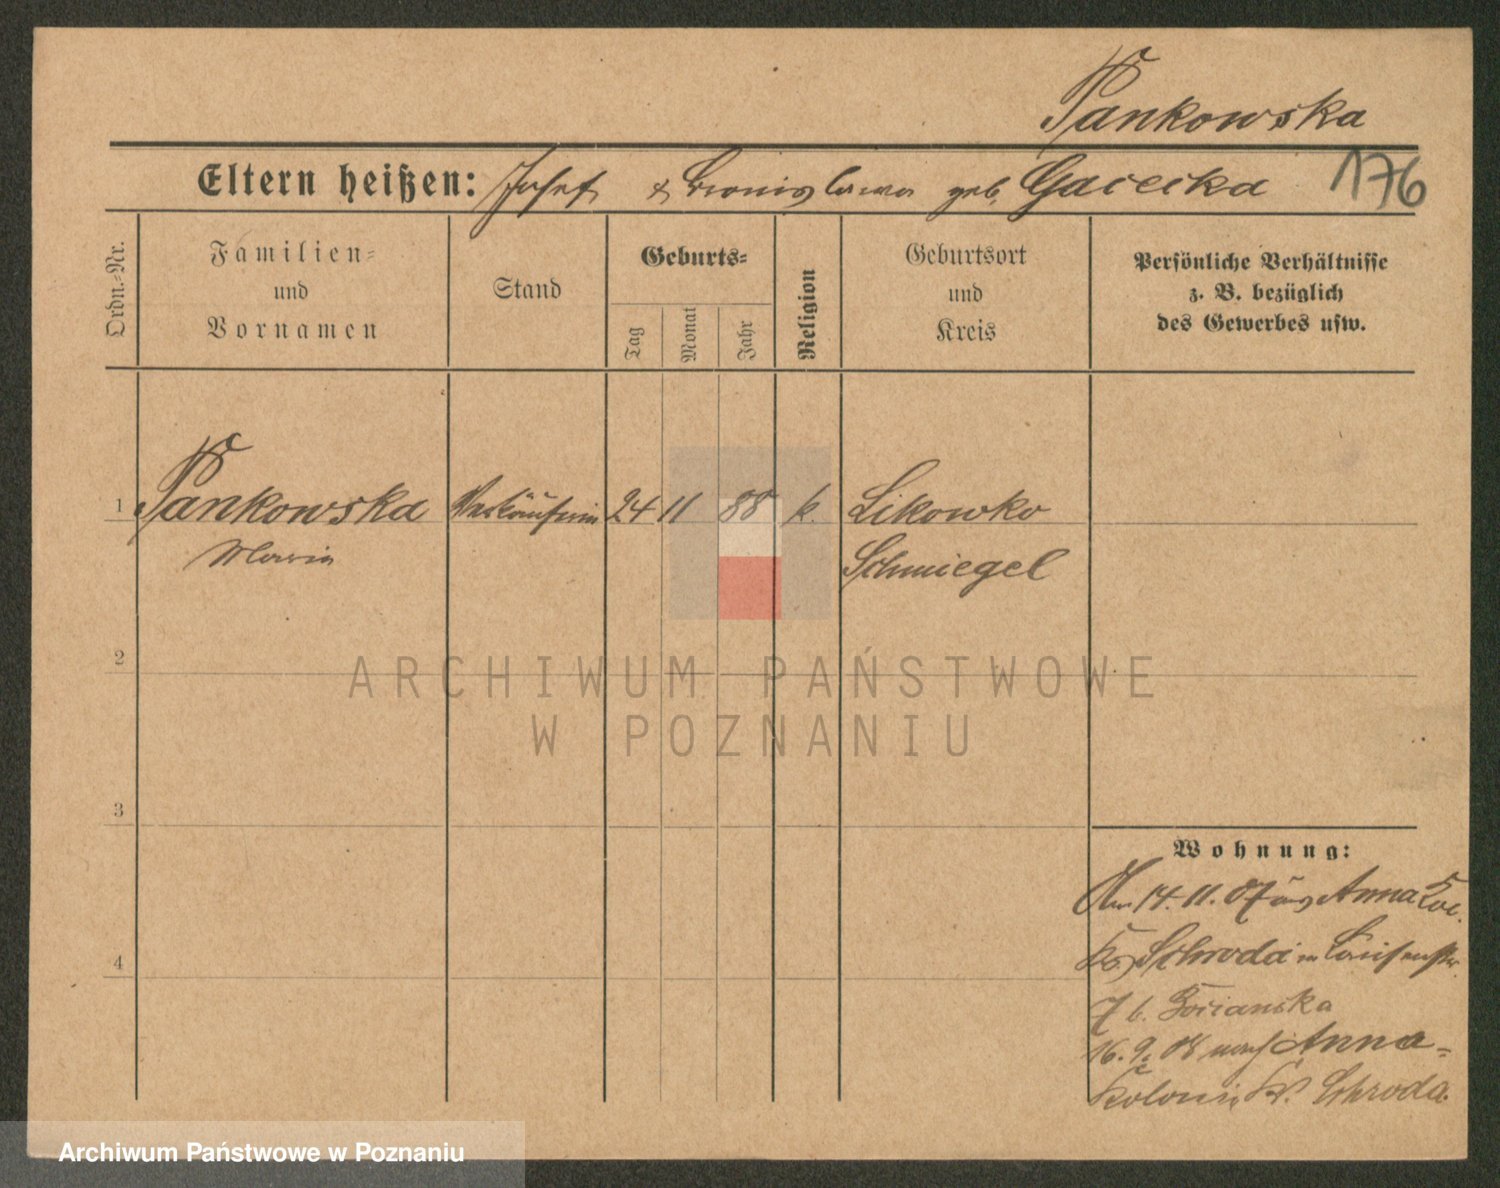 Pankowska
Eltern heißen: Josef & Bronislawa geb. Gacecka 176
Ordn.-Nr.
Familien-
und
Vornamen
Stand
Geburts-
Tag
Monat
Jahr
Religion
Geburtsort
und
Kreis
Persönliche Verhältnisse
z. B. bezüglich
des Gewerbes usw.
1 Pankowska Verkäuferin 24 11 88 k. Likowko
Maria Schmiegel
2
ARCHIWUM PAŃSTWOWE
W POZNANIU
3
Wohnung:
14.11.07 aus Anna Kol.
Schroda in Luisenstr.
4
7 b.
16.9.08 nach Anna-
Kolonie Kr. Schroda.
Archiwum Państwowe w Poznaniu